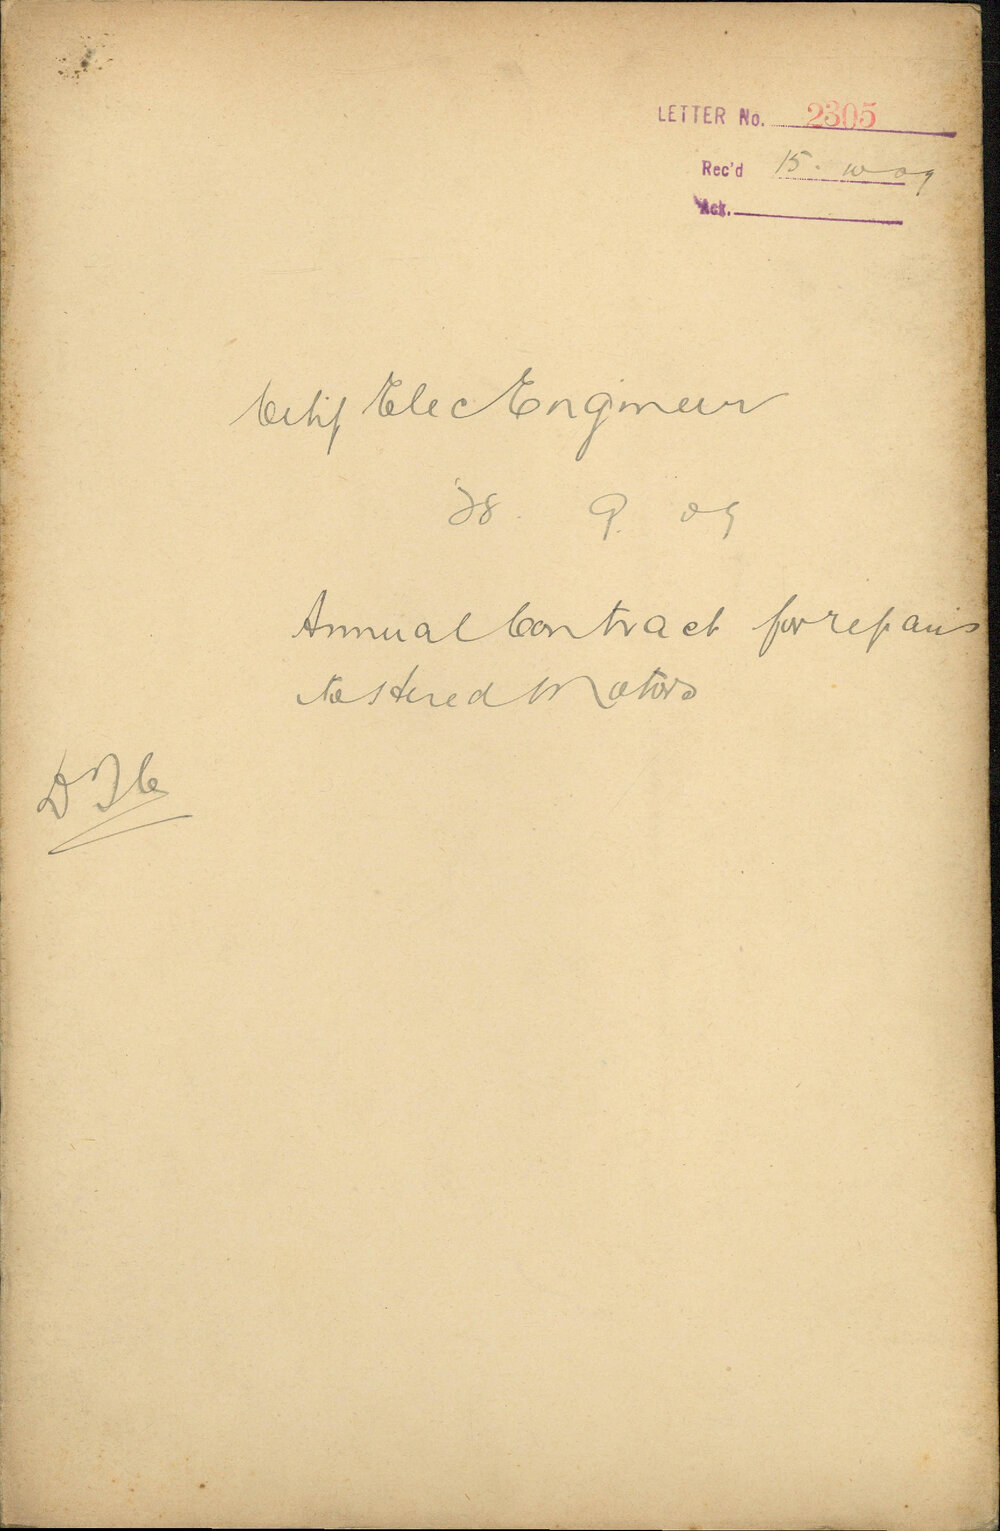 LETTER No. 2305
Rec'd 15. 10 09
Ack.
Elec Engineer
28. 9. 09
Annual Contract for repairs
to Motors